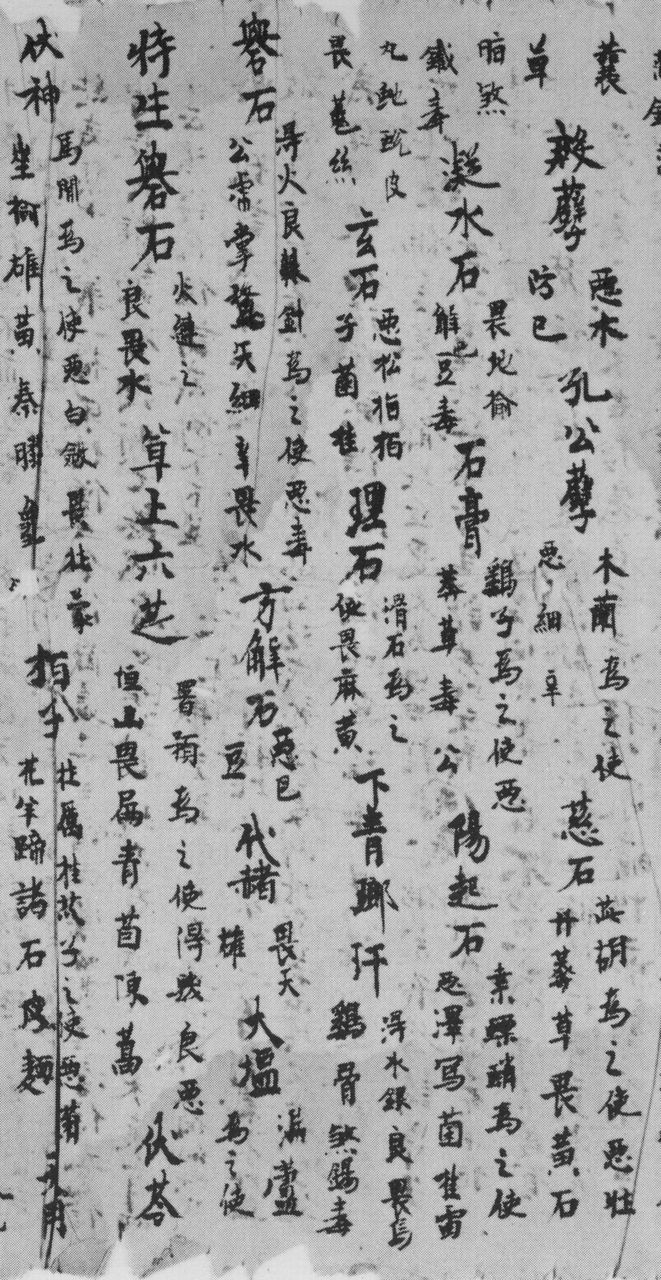 蘘草 殺孽 惡朮防已 孔公孽 木蘭為之使惡細辛 慈石 茈胡為之使惡牡丹莽草畏黃石
暗煞鐵毒 凝水石 畏地榆解巴豆毒 石膏 鷄子為之使惡莽草毒公 陽起石 桑螵蛸為之使惡澤寫菌桂雷
丸虵蛻皮畏菟絲 玄石 惡松指栢子菌桂 理石 滑石為之使畏麻黃 下青瑯玕 得水銀良畏烏鷄骨煞錫毒
礜石 得火良棘針為之使惡毒公掌鶩矢細辛畏水 方解石 惡巴豆 代赭 畏天雄 大塩 漏蘆為之使
特生礜石 火鍊之良畏水 草上六芝 署預為之使得髮良惡恒山畏扁青茵陳蒿 伏苓
伏神 馬閒為之使惡白斂畏牡蒙榆雄黃秦膠龜 栢子 牡厲桂苽子之使惡菊花羊蹄諸石皮麵